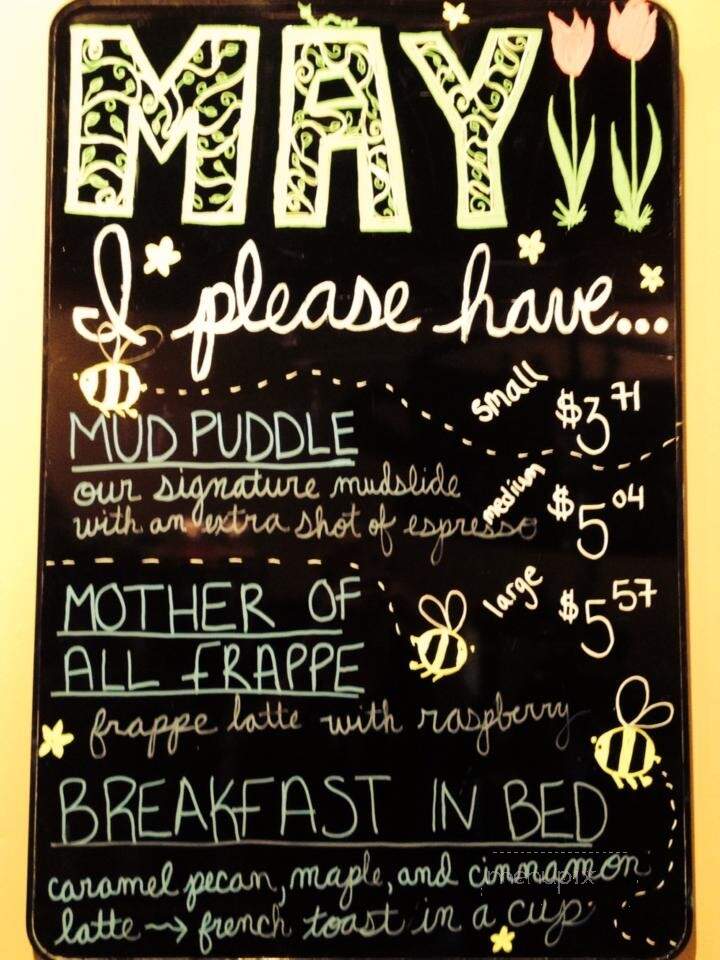 MAY
I please have...
small $3 71
MUD PUDDLE
our signature mudslide
with an extra shot of espresso
medium $5 04
MOTHER OF
ALL FRAPPE
large $5 57
frappe latte with raspberry
BREAKFAST IN BED
caramel pecan, maple, and cinnamon
latte → french toast in a cup
menupix